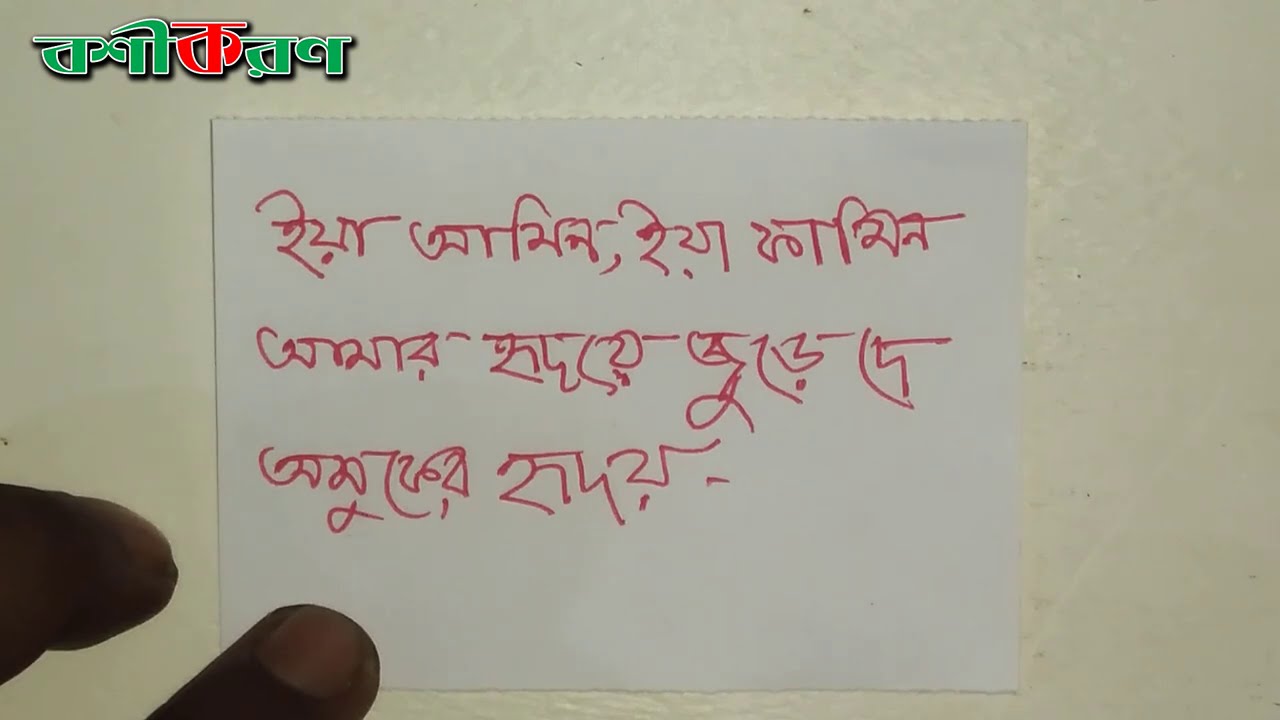 বশীকরণ
ইয়া আমিন, ইয়া ফামিন
আমার হৃদয়ে জুড়ে দে
অমুকের হৃদয়.